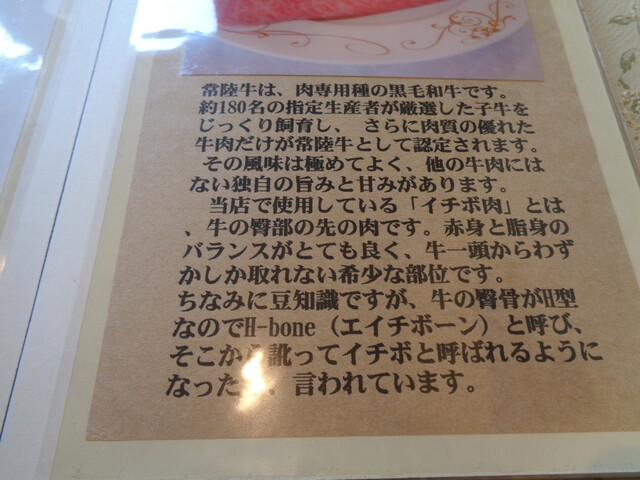 常陸牛は、肉専用種の黒毛和牛です。
約180名の指定生産者が厳選した子牛を
じっくり飼育し、さらに肉質の優れた
牛肉だけが常陸牛として認定されます。
その風味は極めてよく、他の牛肉には
ない独自の旨みと甘みがあります。
当店で使用している「イチボ肉」とは
、牛の臀部の先の肉です。赤身と脂身の
バランスがとても良く、牛一頭からわず
かしか取れない希少な部位です。
ちなみに豆知識ですが、牛の臀骨がH型
なのでH-bone（エイチボーン）と呼び、
そこから訛ってイチボと呼ばれるように
なった、言われています。